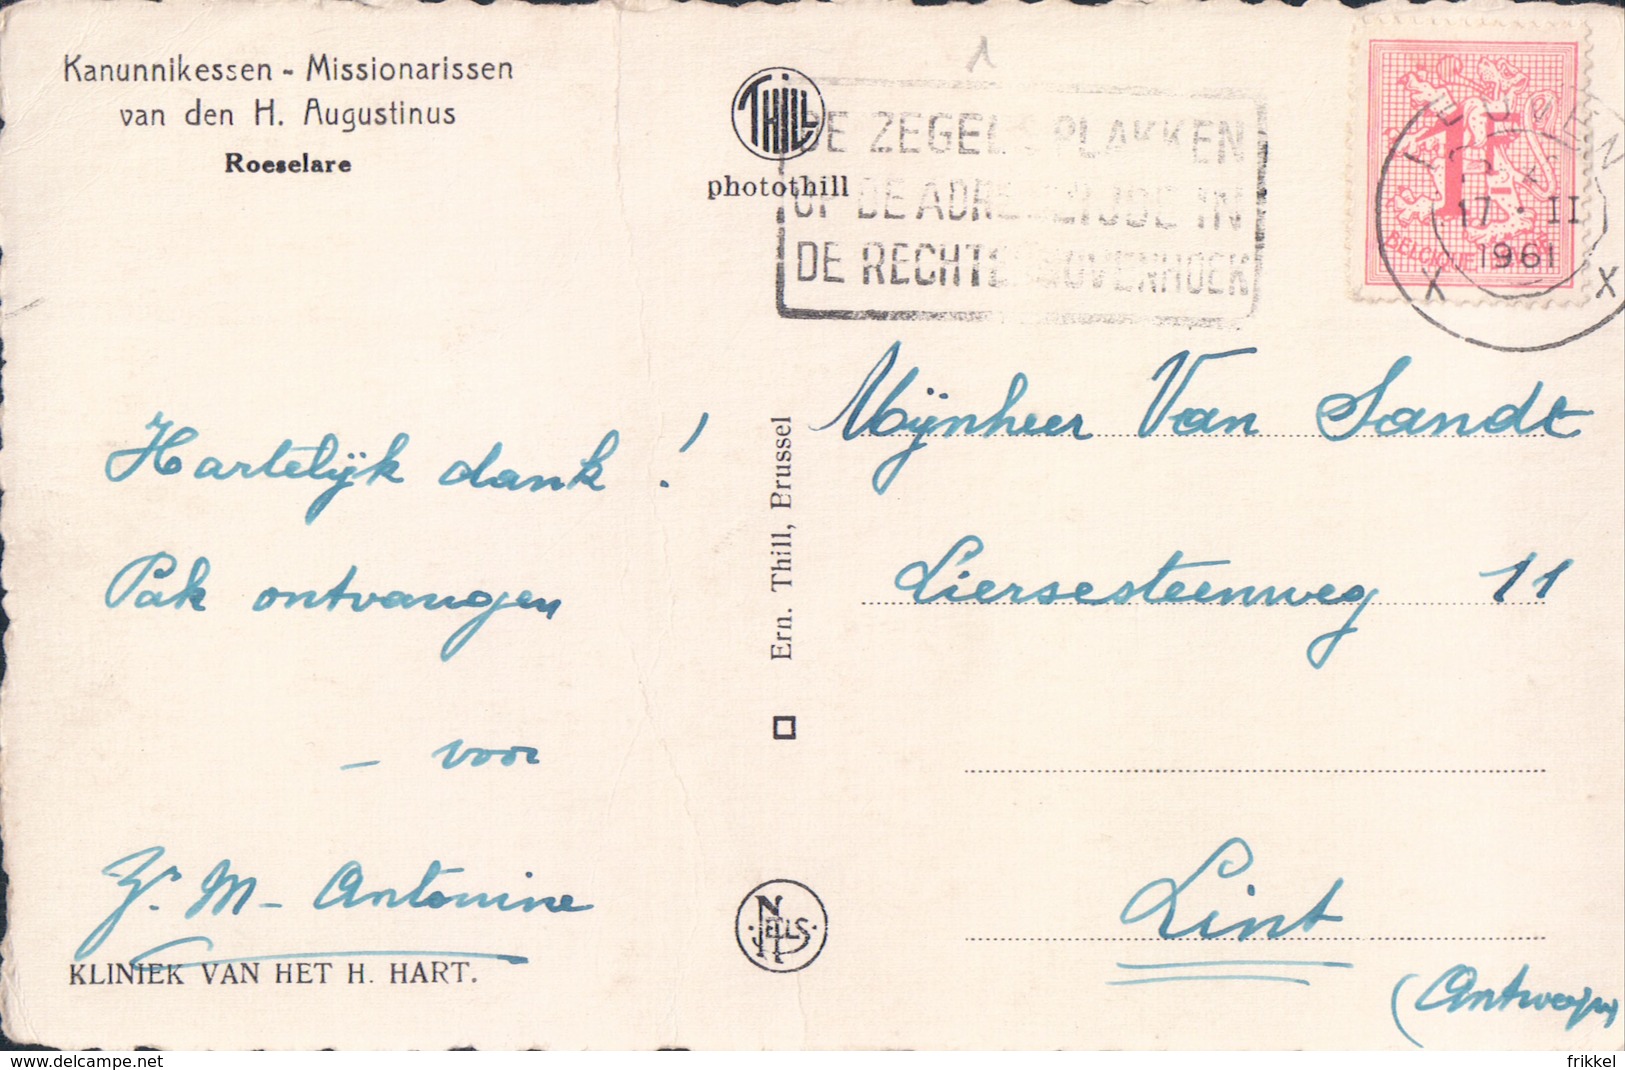 Kanunnikessen - Missionarissen
van den H. Augustinus
Roeselare
THILL
photothill
1
DE ZEGELS PLAKKEN
OP DE ADRESZIJDE IN
DE RECHTERBOVENHOEK
17 · II
1961
X X
BELGIQUE
Hartelijk dank !
Pak ontvangen
- voor
Zr. M - Antonine
KLINIEK VAN HET H. HART.
Ern. Thill, Brussel
NELS
Mijnheer Van Sandt
Liersesteenweg 11
Lint
(Antwerpen
delcampe.net
frikkel